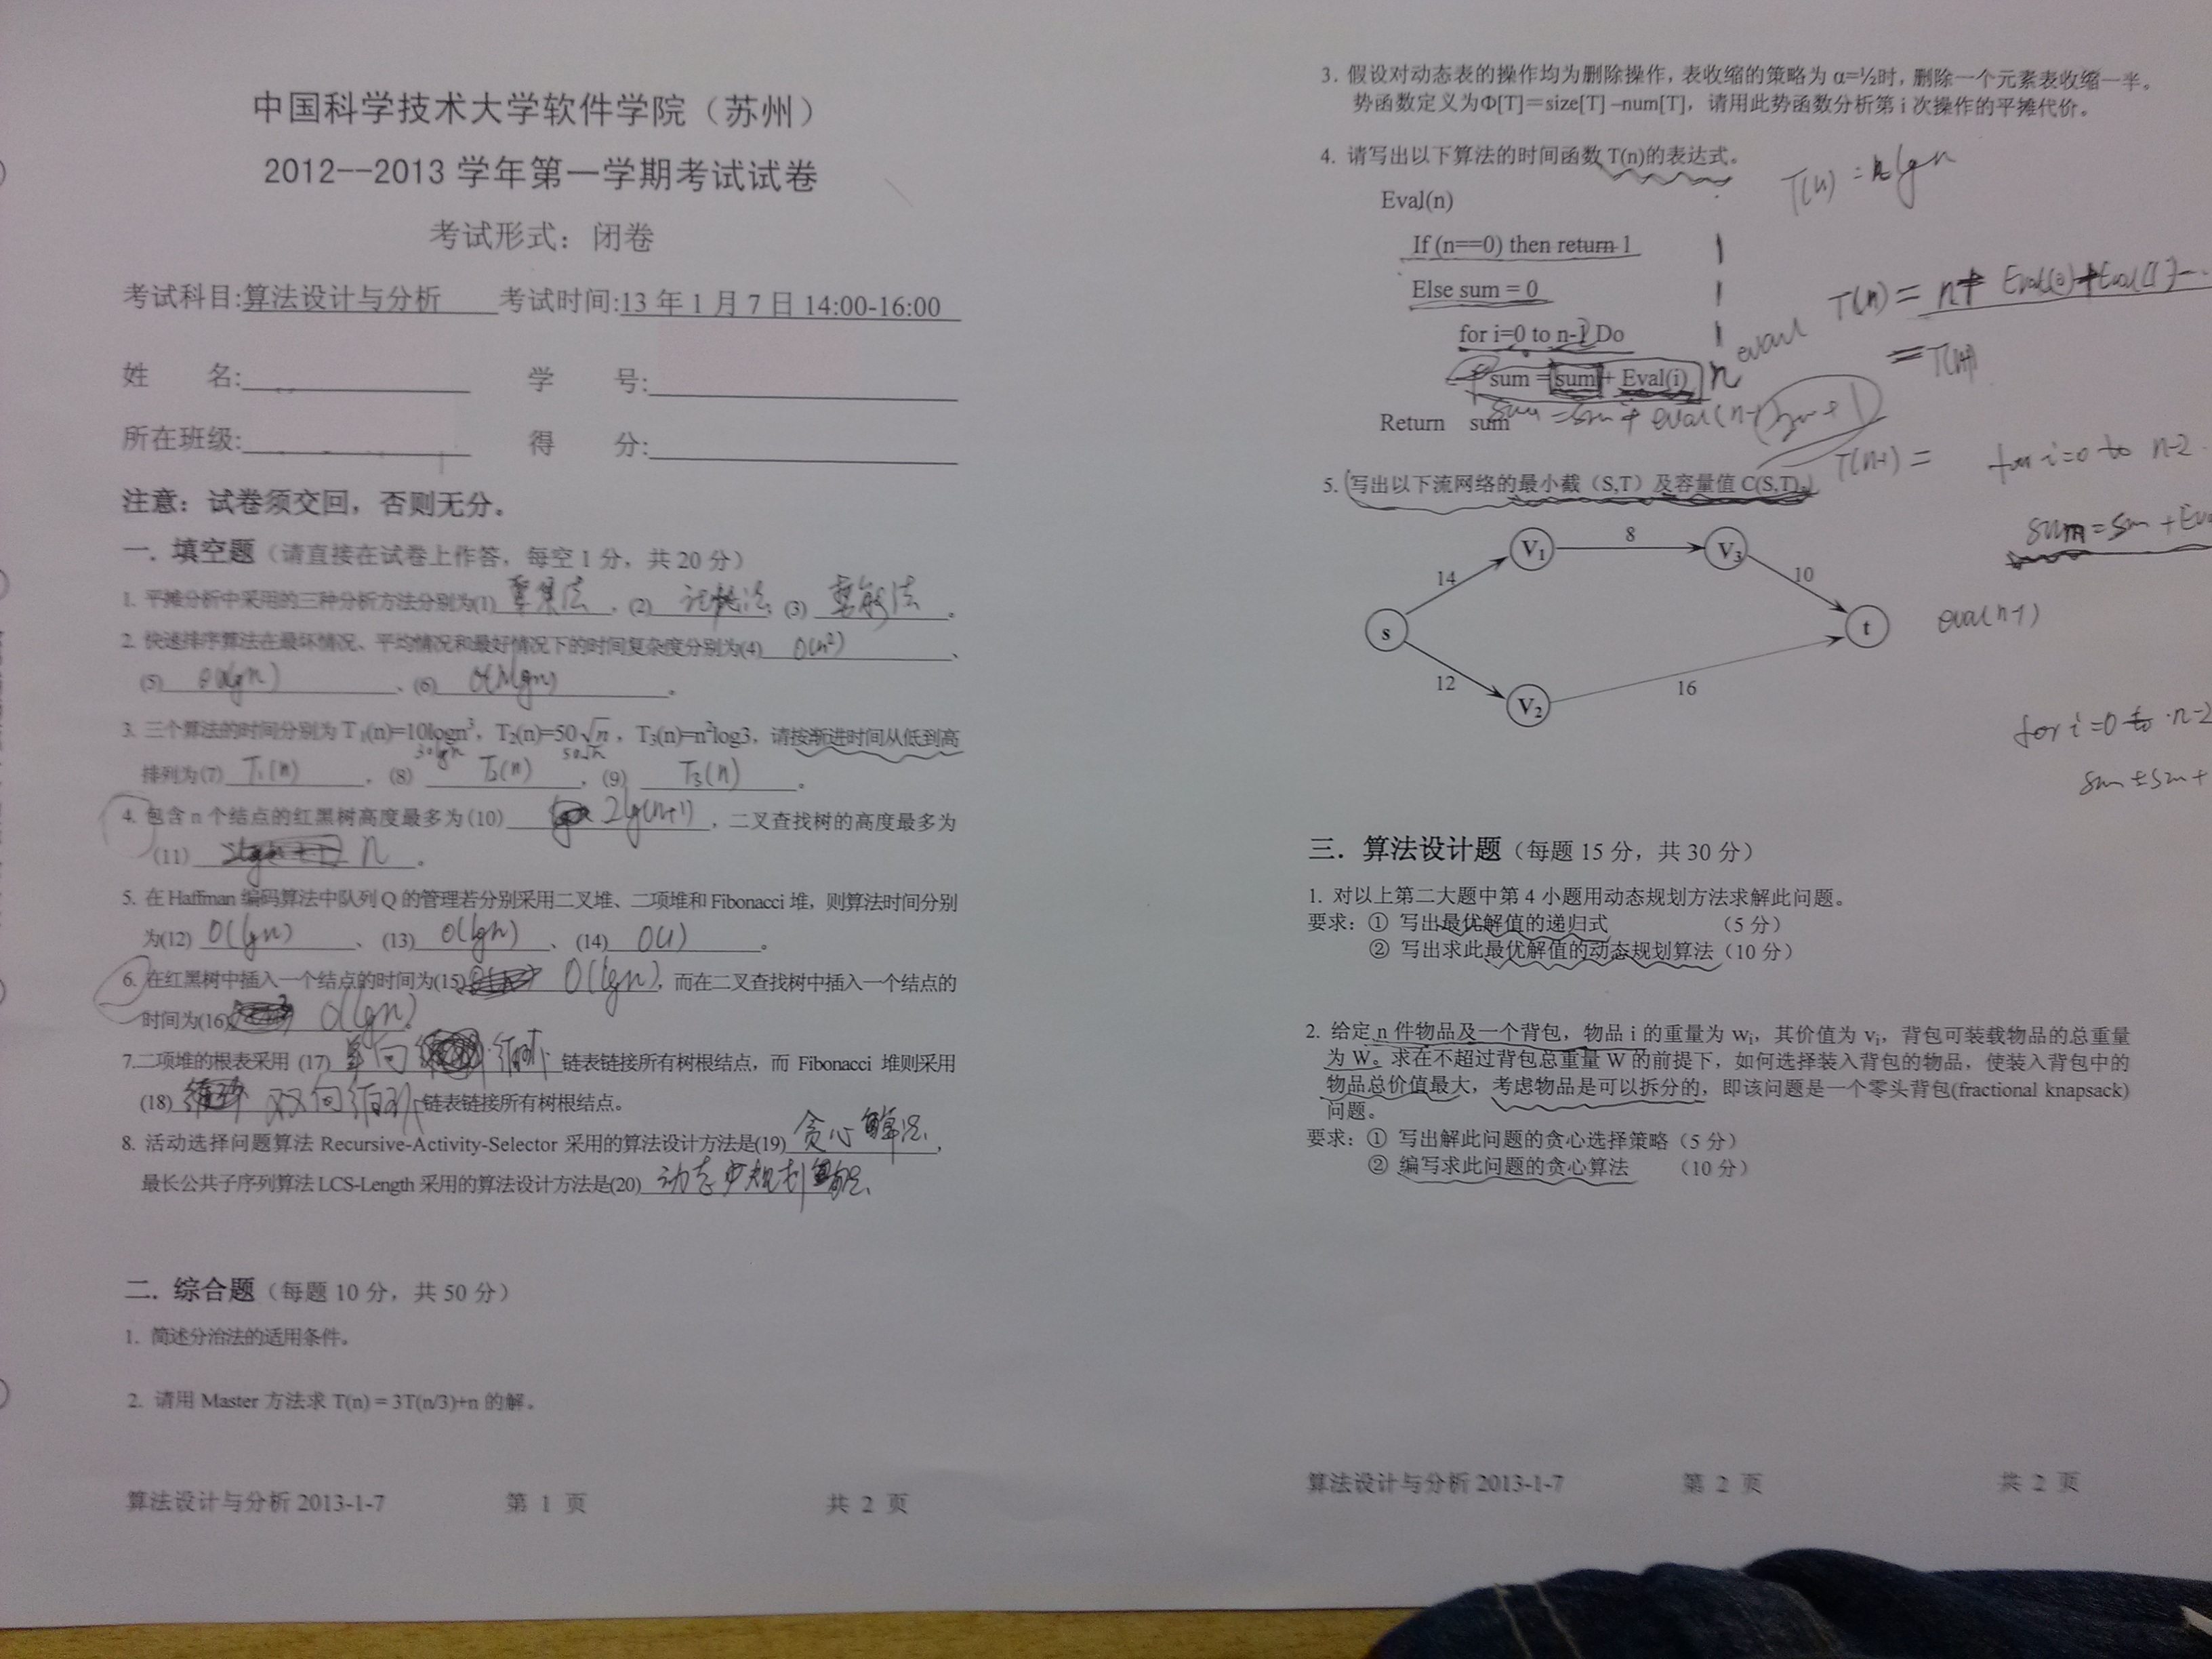 中国科学技术大学软件学院（苏州）
2012--2013 学年第一学期考试试卷
考试形式：闭卷
考试科目:算法设计与分析 考试时间:13 年 1 月 7 日 14:00-16:00
姓 名: 学 号:
所在班级: 得 分:
注意：试卷须交回，否则无分。
一. 填空题（请直接在试卷上作答，每空 1 分，共 20 分）
1. 平摊分析中采用的三种分析方法分别为(1) 聚集法 ，(2) 记账法，(3) 势能法 。
2. 快速排序算法在最坏情况、平均情况和最好情况下的时间复杂度分别为(4) O(n²) 、
(5) 、(6) O(nlgn) 。
3. 三个算法的时间分别为 T₁(n)=10logn³，T₂(n)=50√n，T₃(n)=n²log3，请按渐进时间从低到高
30lgn 50√n
排列为(7) T₁(n) ，(8) T₂(n) ，(9) T₃(n) 。
4. 包含 n 个结点的红黑树高度最多为(10) 2lg(n+1) ，二叉查找树的高度最多为
(11) n 。
5. 在 Haffman 编码算法中队列 Q 的管理若分别采用二叉堆、二项堆和 Fibonacci 堆，则算法时间分别
为(12) O(lgn) 、(13) O(lgn) 、(14) O(1) 。
6. 在红黑树中插入一个结点的时间为(15) O(lgn)，而在二叉查找树中插入一个结点的
时间为(16) O(lgn)。
7.二项堆的根表采用 (17) 单向 链表链接所有树根结点，而 Fibonacci 堆则采用
(18) 双向循环 链表链接所有树根结点。
8. 活动选择问题算法 Recursive-Activity-Selector 采用的算法设计方法是(19) 贪心算法，
最长公共子序列算法 LCS-Length 采用的算法设计方法是(20) 动态规划
二. 综合题（每题 10 分，共 50 分）
1. 简述分治法的适用条件。
2. 请用 Master 方法求 T(n) = 3T(n/3)+n 的解。
算法设计与分析 2013-1-7 第 1 页 共 2 页
3. 假设对动态表的操作均为删除操作，表收缩的策略为 α=½时，删除一个元素表收缩一半。
势函数定义为Φ[T]＝size[T] –num[T]，请用此势函数分析第 i 次操作的平摊代价。
4. 请写出以下算法的时间函数 T(n)的表达式。
T(n) = nlgn
Eval(n)
If (n==0) then return 1 1
Else sum = 0 1
T(n) = n+ Eval(0)+Eval(1)...
for i=0 to n-1 Do 1
sum = sum + Eval(i) n
sum = sum + eval(n-1)
Return sum
T(n-1) = for i=0 to n-2
5. 写出以下流网络的最小截（S,T）及容量值 C(S,T)。
sum = sum + Eva
V₁ 8 V₃
14 10
s t
eval(n-1)
12 16
V₂
for i=0 to n-2
sum = sum +
三．算法设计题（每题 15 分，共 30 分）
1. 对以上第二大题中第 4 小题用动态规划方法求解此问题。
要求：① 写出最优解值的递归式 （5 分）
② 写出求此最优解值的动态规划算法（10 分）
2. 给定 n 件物品及一个背包，物品 i 的重量为 wᵢ，其价值为 vᵢ，背包可装载物品的总重量
为 W。求在不超过背包总重量 W 的前提下，如何选择装入背包的物品，使装入背包中的
物品总价值最大，考虑物品是可以拆分的，即该问题是一个零头背包(fractional knapsack)
问题。
要求：① 写出解此问题的贪心选择策略（5 分）
② 编写求此问题的贪心算法 （10 分）
算法设计与分析 2013-1-7 第 2 页 共 2 页